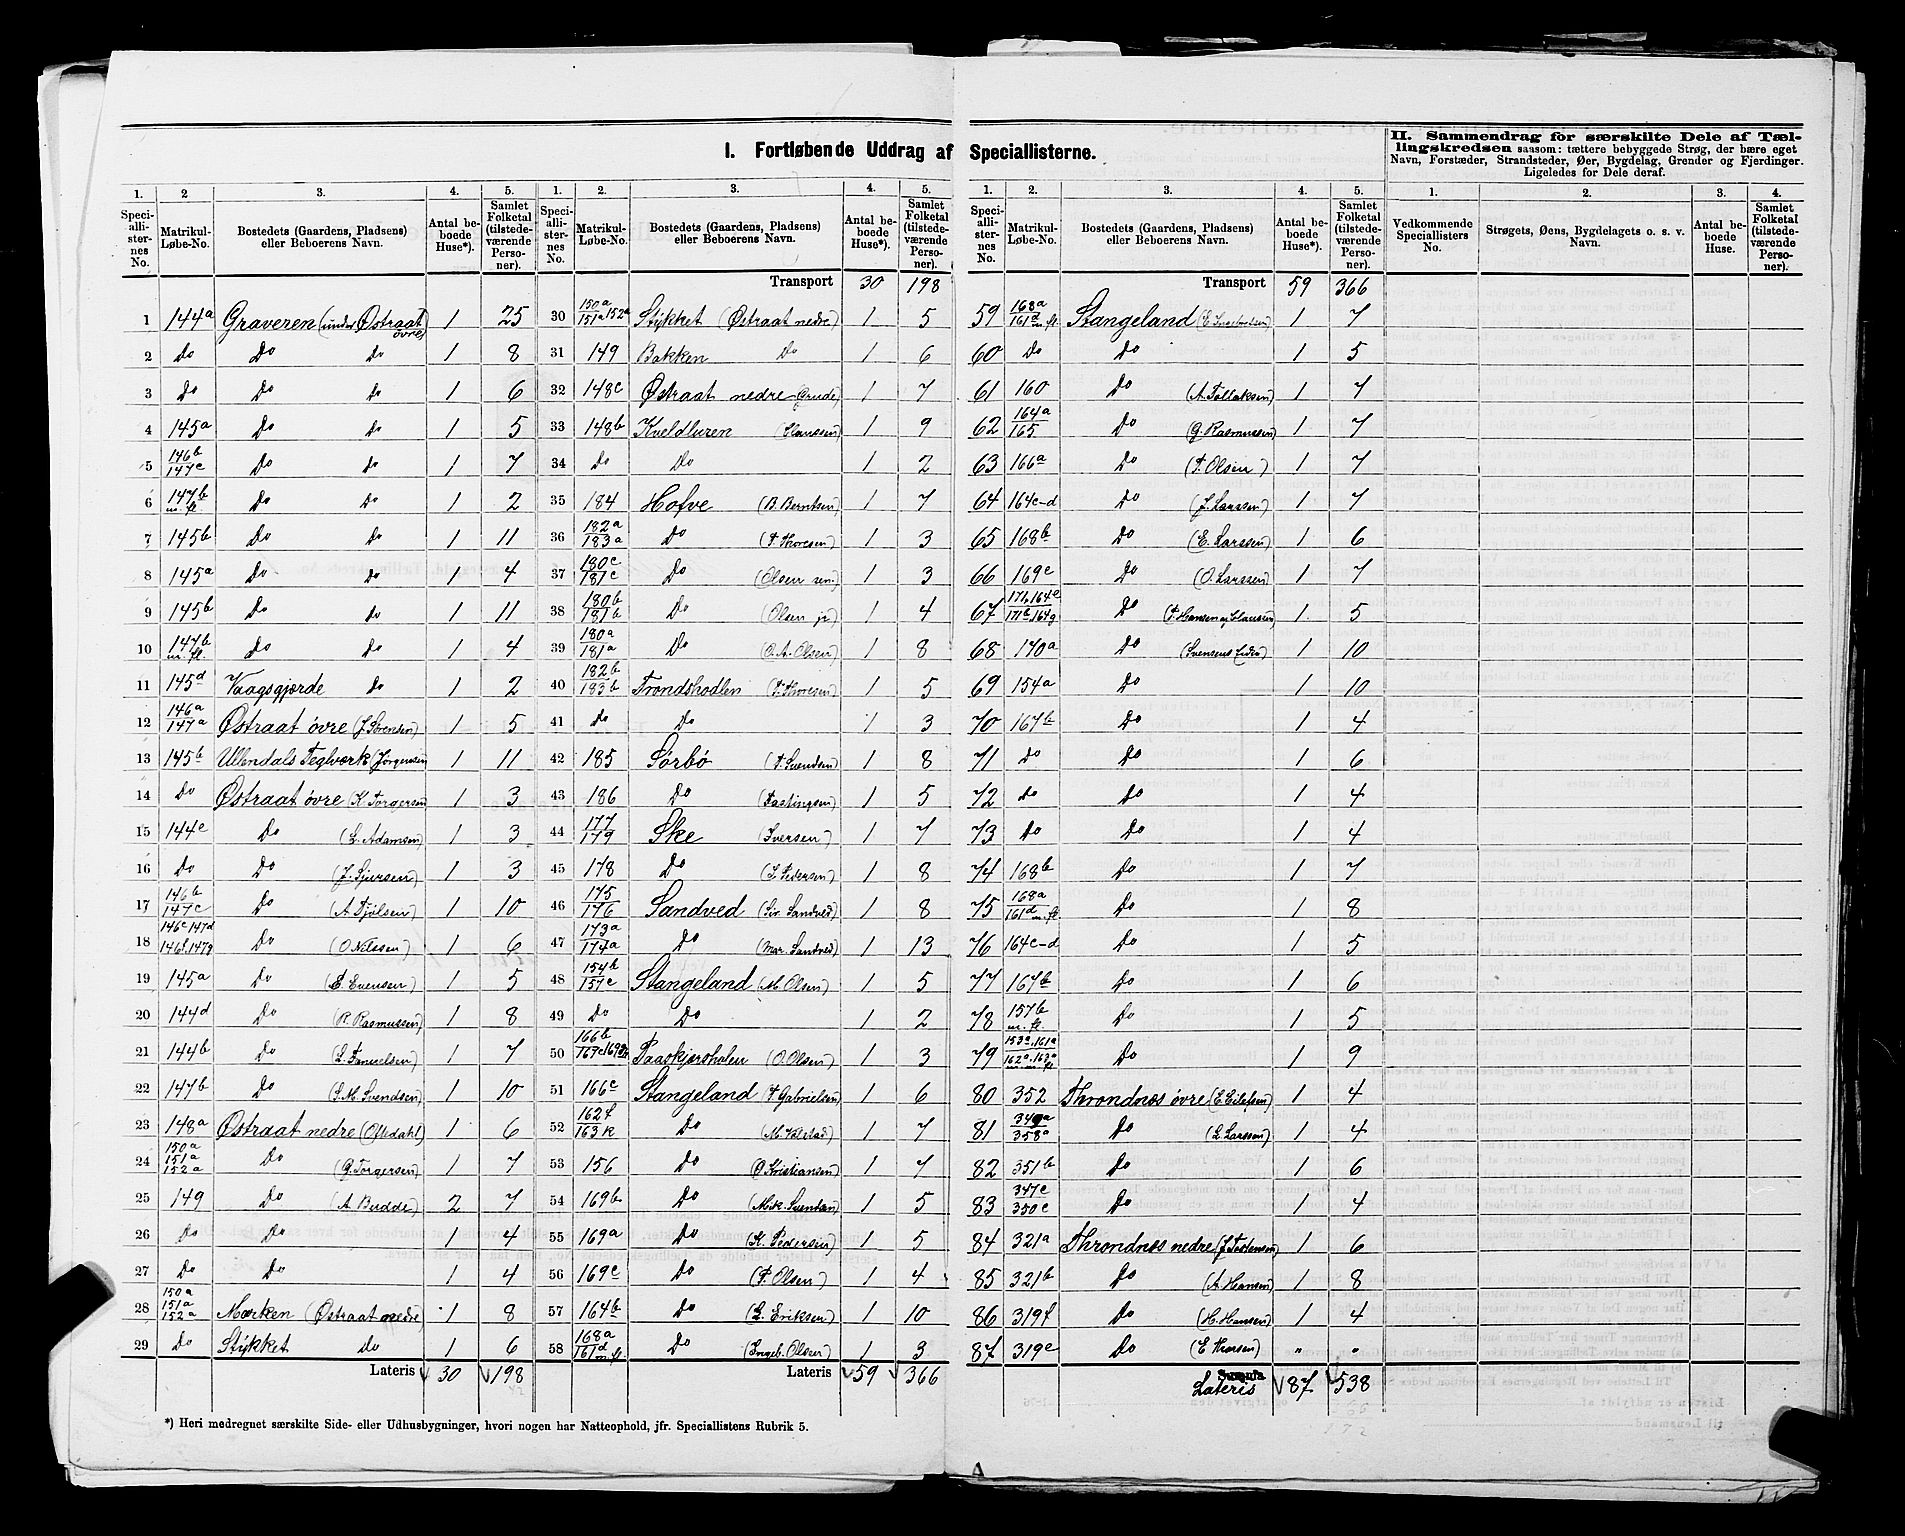 I. Fortløbende Uddrag af Speciallisterne.
II. Sammendrag for særskilte Dele af Tæl-
lingskredsen saasom: tættere bebyggede Strøg, der bære eget
Navn, Forstæder, Strandsteder, Øer, Bygdelag, Grender og Fjerdinger.
Ligeledes for Dele deraf.
1. 2 3. 4. 5. 1. 2. 3. 4. 5. 1. 2. 3. 4. 5. 1. 2. 3. 4.
Speci-alli-ster-nes No. Matrikul-Løbe-No. Bostedets (Gaardens, Pladsens) eller Beboerens Navn. Antal be-boede Huse*). Samlet Folketal (tilstede-værende Perso-ner).
Speci-alli-ster-nes No. Matrikul-Løbe-No. Bostedets (Gaardens, Pladsens) eller Beboerens Navn. Antal be-boede Huse*). Samlet Folketal (tilstede-værende Perso-ner).
Speci-alli-ster-nes No. Matrikul-Løbe-No. Bostedets (Gaardens, Pladsens) eller Beboerens Navn. Antal be-boede Huse*). Samlet Folketal (tilstede-værende Perso-ner).
Vedkommende Speciallisters No. Strøgets, Øens, Bygdelagets o. s. v. Navn. Antal be-boede Huse. Samlet Folketal (tilstede-værende Perso-ner).
1 144a Graveren (under Østraat øvre) 1 25
2 Do Do Do 1 8
3 Do Do Do 1 6
4 145a Do Do 1 5
5 146b 147c Do Do 1 7
6 147b m. fl. Do Do 1 2
7 145b Do Do 1 11
8 145a Do Do 1 4
9 145b Do Do 1 11
10 147b m. fl. Do Do 1 4
11 145d Vaagsgjerde Do 1 2
12 146a 147a Østraat øvre (J Sørensen) 1 5
13 145b Ullendals Teglværk (Jørgensen 1 11
14 Do Østraat øvre (K. Torgersen) 1 3
15 144e Do (L. Adamsen) 1 3
16 Do Do (J. Sjursen) 1 3
17 146b 147c Do (A. Tjølsen) 1 10
18 146c 147d 146f. 147g Do (O Nilssen) 1 6
19 145a Do Evensen) 1 5
20 144d Do (R. Rasmussen) 1 8
21 144b Do 1 7
22 147b Do (S. M. Svendsen) 1 10
23 148a Østraat nedre (Oftedahl) 1 6
24 150a 151a 152a Do (G. Torgersen) 1 7
25 149 Do (A. Budde) 2 7
26 Do Do 1 4
27 Do Do 1 4
28 150a 151a 152a Marken (Østraat nedre) 1 8
29 Do Stykket Do 1 6
Lateris 30 198
Transport 30 198
30 150a 151a 152a Stykket (Østraat nedre) 1 5
31 149 Bakken Do 1 6
32 148c Østraat nedre (Grude) 1 7
33 148b Kveldluren (Claussen) 1 9
34 Do Do 1 2
35 184 Hofve (B. Berntsen) 1 7
36 182a 183a Do (T. Thoresen) 1 3
37 180c 181c Do (Olsen sen.) 1 3
38 180b 181b Do (Olsen jr) 1 4
39 180a 181a Do (O. A. Olsen) 1 8
40 182b 183b Trondshodlen (T. Thoresen) 1 5
41 Do Do 1 3
42 185 Sørbø (T. Svendsen) 1 8
43 186 Do (Fastingsen) 1 5
44 177 179 Ske (Iversen) 1 7
45 178 Do Pedersen) 1 8
46 175 176 Sandved (Siv. Sandved) 1 8
47 173a 174a Do (Mar. Sandved) 1 13
48 154b 157c Stangeland (M. Olsen) 1 5
49 Do Do 1 2
50 166b (O. Olsen) 1 3
51 166c Stangeland (T Gabrielsen) 1 6
52 162f 163k Do 1 7
53 156 Do (O Kristiansen) 1 7
54 169b Do 1 5
55 169a Do (K. Pedersen) 1 5
56 169c Do (P. Olsen) 1 4
57 164b Do (L. Eriksen) 1 10
58 168a 161d m. fl. Do (Ingeb. Olsen) 1 3
Lateris 59 366
Transport 59 366
59 168a 161d m. fl. Stangeland 1 7
60 Do Do 1 5
61 160 Do (A. Tollaksen) 1 7
62 164a 165 Do (G. Rasmussen) 1 7
63 166a Do (T. Olsen) 1 7
64 164c-d Do (J. Larssen) 1 7
65 168b Do (E. Larssen) 1 6
66 169c Do (O. Larssen) 1 7
67 171. 164e 171b. 164g Do (T. Hansen og Clausen) 1 5
68 170a Do 1 10
69 154a Do 1 10
70 167b Do 1 4
71 Do Do 1 6
72 Do Do 1 4
73 Do Do 1 4
74 168b Do 1 7
75 168a 161d m. fl. Do 1 8
76 164c-d Do 1 5
77 167b Do 1 6
78 157b m. fl. Do 1 5
79 153a. 161a 162a. 163a m. m. fl. Do 1 9
80 352 Throndnes øvre (E. Eilefsen) 1 4
81 349a 358a Do (L. Larssen) 1 4
82 351b Do 1 6
83 347c 350c Do 1 4
84 321a Throndnes nedre (J Torstensen) 1 6
85 321b Do (A. Hansen) 1 8
86 319f Do (H. Hansen) 1 4
87 319e Do (E Thorsen) " "
Lateris 87 538
*) Heri medregnet særskilte Side- eller Udhusbygninger, hvori nogen har Natteophold, jfr. Speciallistens Rubrik 5.